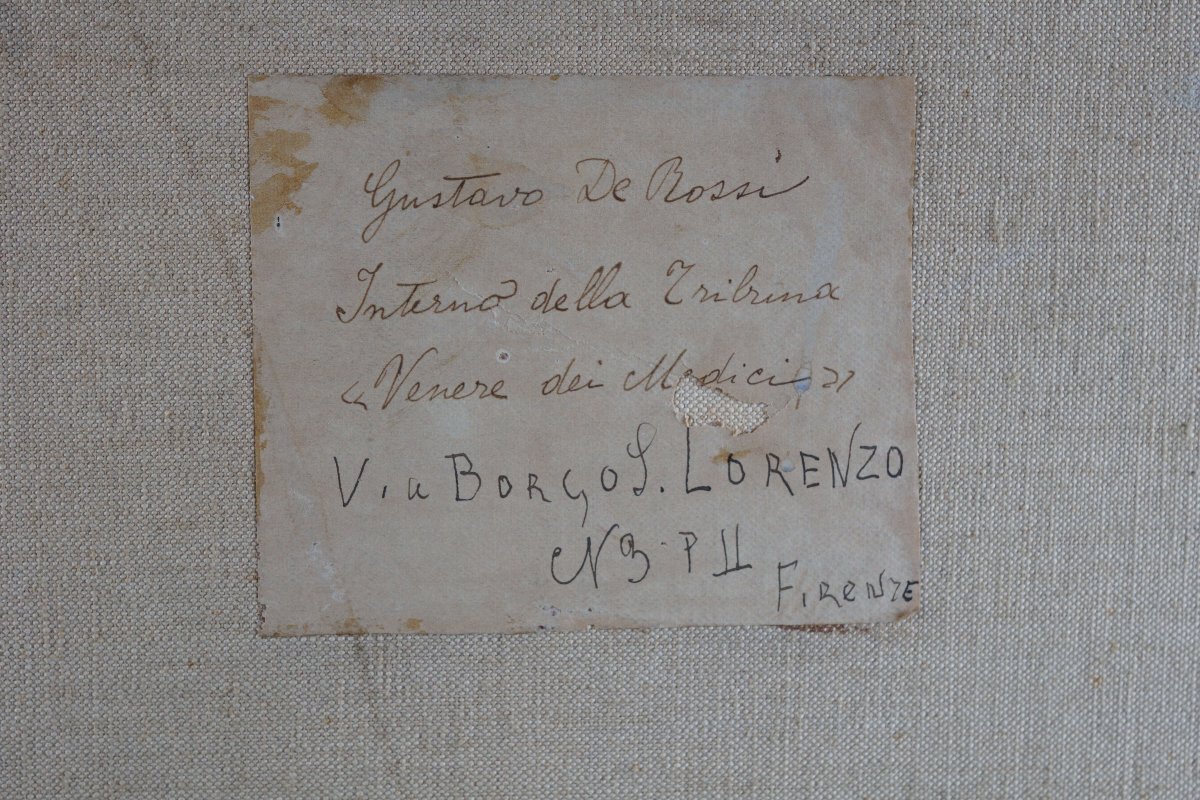 Gustavo De Rossi
Interno della Tribuna
«Venere dei Medici»
Via BORGO S. LORENZO
N 3 P II
FIRENZE